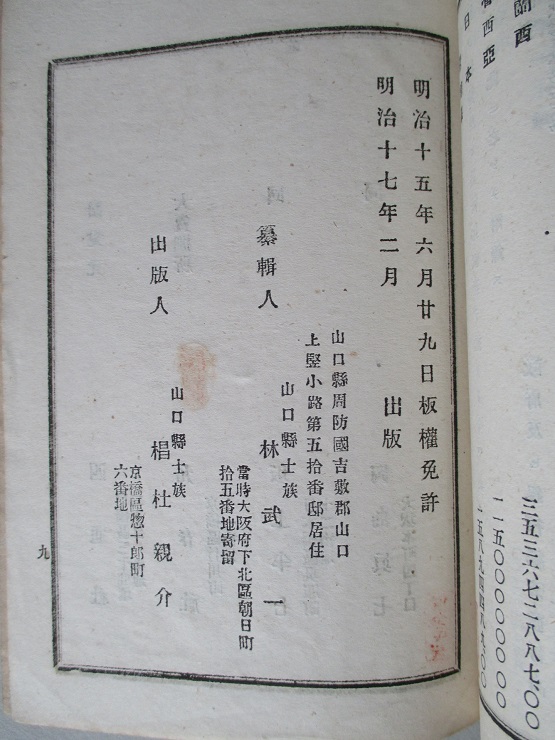 蘭西
魯西亞
日本
三五三六七二八八七、〇〇
一一五〇〇〇〇〇〇〇
明治十五年六月廿九日板權免許
明治十七年二月 出版
山口縣周防國吉敷郡山口
上竪小路第五拾番邸居住
山口縣士族
纂輯人 林武一
當時大阪府下北區朝日町
拾五番地寄留
山口縣士族
出版人 椙杜親介
京橋區惣十郎町
六番地
九